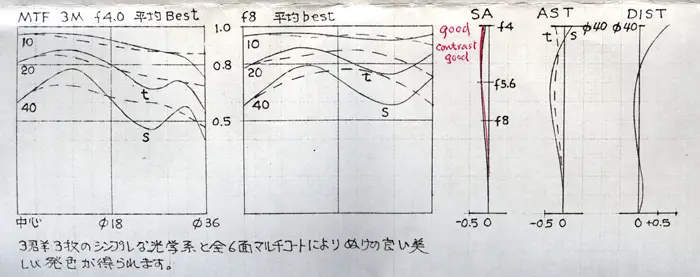 MTF 3M f4.0 平均Best
f8 平均best
SA
AST
DIST
10
20
40
t
s
1.0
0.8
0.5
10
20
40
t
s
good
contrast
good
f4
f5.6
f8
t
s
φ40
φ40
中心
φ18
φ36
-0.5 0
-0.5 0
0 +0.5
3群3枚のシンプルな光学系と全6面マルチコートによりぬけの良い美
しい発色が得られます。